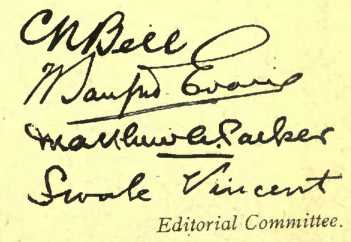 C N Bell
W Sanford Evans
Matthew A. Parker
Swale Vincent
Editorial Committee.